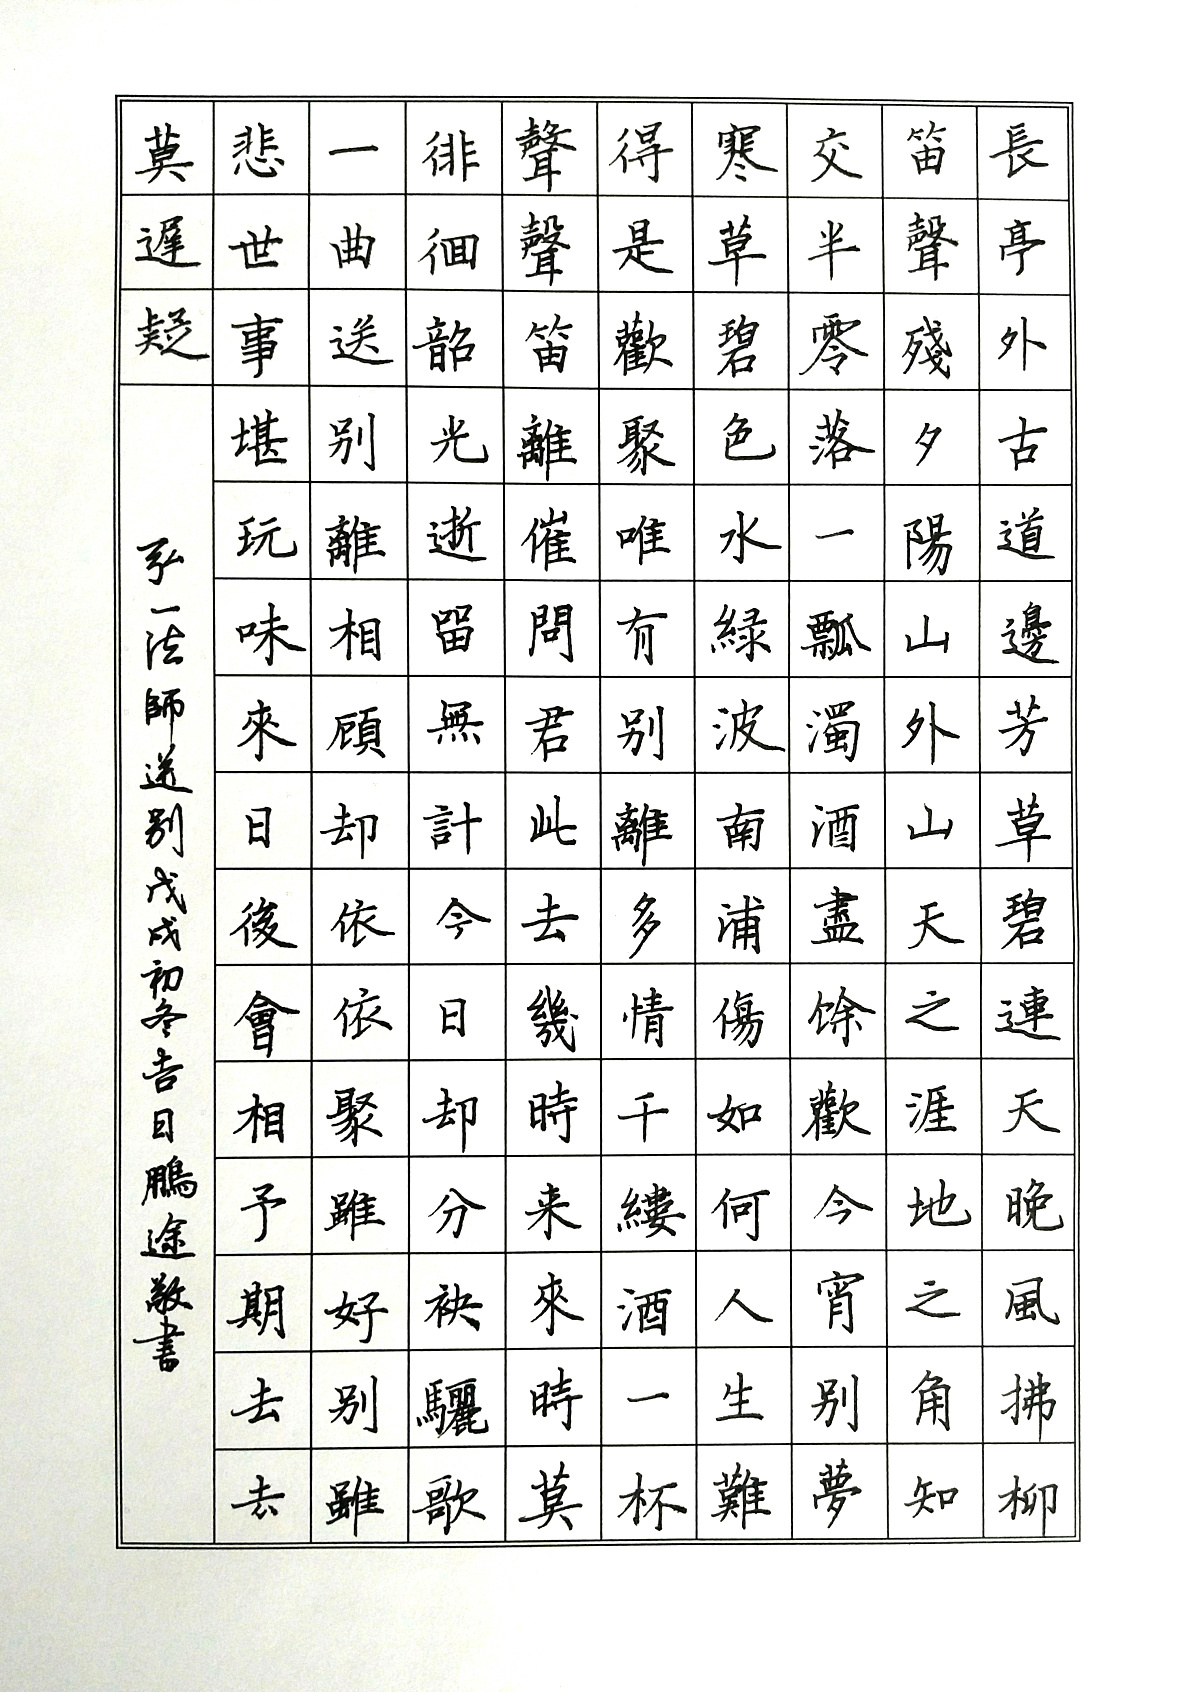 長亭外古道邊芳草碧連天晚風拂柳
笛聲殘夕陽山外山天之涯地之角知
交半零落一瓢濁酒盡馀歡今宵别夢
寒草碧色水緑波南浦傷如何人生難
得是歡聚唯有别離多情千縷酒一杯
聲聲笛離催問君此去幾時来來時莫
徘徊韶光逝留無計今日却分袂驪歌
一曲送别離相顧却依依聚雖好别雖
悲世事堪玩味來日後會相予期去去
莫遲疑
弘一法師送别戊戌初冬吉日鵬途敬書